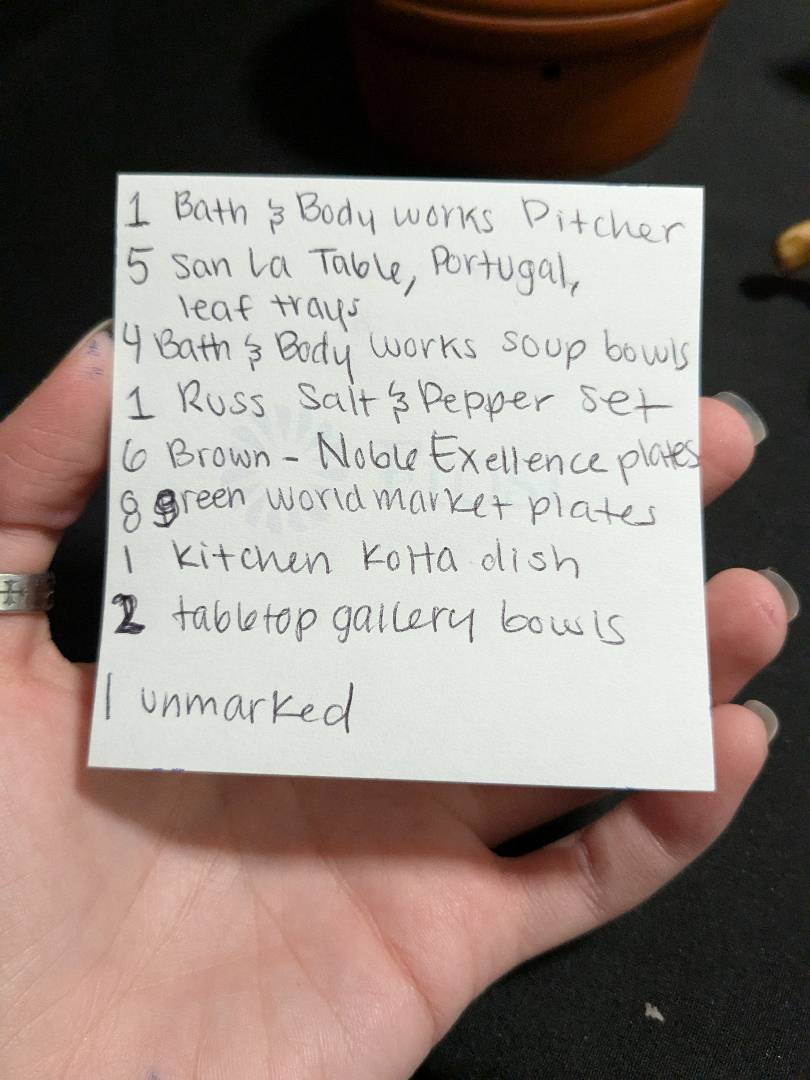 1 Bath & Body works Pitcher
5 San La Table, Portugal,
leaf trays
4 Bath & Body works soup bowls
1 Russ Salt & Pepper set
6 Brown - Noble Exellence plates
8 green world market plates
1 kitchen Kotta dish
2 tabletop gallery bowls
1 unmarked